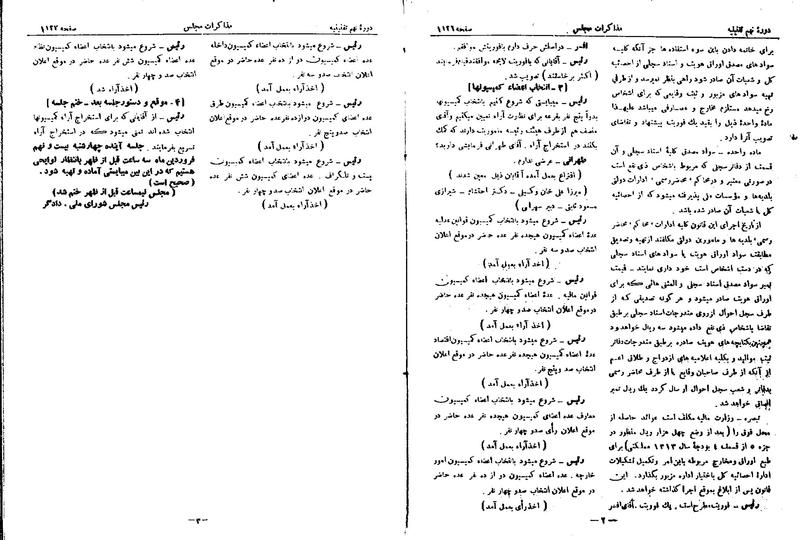 دورهٔ نهم تقنینیه
مذاکرات مجلس
صفحه ۱۱۲۶
برای خاتمه دادن باین سوء استفاده ها جز آنکه کلیه
سوادهای مصدق اوراق هویت و اسناد سجلی از احصائیه
کل و شعبات آن صادر شود راهی بنظر نمیرسد و از طرفی
تهیه سوادهای مزبور و ثبت وقایعی که برای اشخاص
رخ میدهد مستلزم مخارج و مصارفی میباشد علیهذا
مادهٔ واحدهٔ ذیل را بقید یک فوریت پیشنهاد و تقاضای
تصویب آنرا دارد.
ماده واحده - سواد مصدق کلیهٔ اسناد سجلی و آن
قسمت از دفاتر سجلی که مربوط باشخاص ذی نفع است
در صورتی معتبر و در محاکم، محاضر رسمی، ادارات دولتی
بلدیه‌ها و مؤسسات ملی پذیرفته میشود که از احصائیه
کل یا شعبات آن صادر شده باشد.
از تاریخ اجرای این قانون کلیه ادارات، محاکم، محاضر
رسمی، بلدیه ها و مامورین دولتی مکلفند از تهیه و تصدیق
مطابقت سواد اوراق هویت یا سوادهای اسناد سجلی
که در دست اشخاص است خود داری نمایند - قیمت
تمبر سواد مصدق اسناد سجلی و المثنی هائی که برای
اوراق هویت صادر میشود و هر گونه تصدیقی که از
طرف سجل احوال از روی مندرجات اسناد سجلی بر طبق
تقاضا باشخاص ذی نفع داده میشود سه ریال خواهد بود
همچنین بکتابچه‌های هویت صادره بر طبق مندرجات دفاتر
ثبت موالید و بکلیه اعلامیه های ازدواج و طلاق اعم
از آنکه از طرف صاحبان وقایع یا از طرف محاضر رسمی
بدفاتر و شعب سجل احوال ارسال گردد یک ریال تمبر
الصاق خواهد شد.
تبصره - وزارت مالیه مکلف است عوائد حاصله از
محل فوق را ( بعد از وضع چهل هزار ریال منظور در
جزء ۵ از قسمت ٤ بودجهٔ سال ۱۳۱۳ مملکتی) برای
طبع اوراق و مخارج مربوطه باین امر و تکمیل تشکیلات
ادارهٔ احصائیه کل باختیار اداره مزبور بگذارد. این
قانون پس از ابلاغ بموقع اجرا گذاشته خواهد شد.
رئیس - فوریت مطرح است. یک فوریت. آقای افسر
افسر - در اصلش حرف دارم با فوریتش موافقم.
رئیس - آقایانی که با فوریت لایحه موافقند قیام فرمایند
( اکثر برخاستند ) تصویب شد.
[ ۳ - انتخاب اعضاء کمیسیونها ]
رئیس - میبایستی که شروع کنیم بانتخاب کمیسیونها
بدواً پنج نفر بقرعه برای نظارت آراء تعیین میکنیم و آقای
منصف هم از طرف هیئت رئیسه مأموریت دارند که کمک
بکنند در استخراج آراء. آقای طهرانی فرمایشی دارید؟
طهرانی - عرضی ندارم.
( اقتراع بعمل آمده آقایان ذیل معین شدند )
( میرزا علی خان وکیل - دکتر احتشام - شیرازی
مسعود ثابتی - دبیر سهرابی )
رئیس - شروع میشود بانتخاب کمیسیون قوانین عدلیه
عدهٔ اعضاء کمیسیون هیجده نفر عده حاضر در موقع اعلان
انتخاب صد و سه نفر.
( اخذ آراء بعمل آمد )
رئیس - شروع میشود بانتخاب اعضاء کمیسیون
قوانین مالیه. عدهٔ اعضاء کمیسیون هیجده نفر عده حاضر
در موقع اعلان انتخاب صد و چهار نفر.
( اخذ آراء بعمل آمد )
رئیس - شروع میشود بانتخاب اعضاء کمیسیون اقتصاد
عدهٔ اعضاء کمیسیون هیجده نفر عده حاضر در موقع اعلان
انتخاب صد و پنج نفر.
( اخذ آراء بعمل آمد )
رئیس - شروع میشود بانتخاب اعضاء کمیسیون
معارف عده اعضای کمیسیون هیجده نفر عده حاضر در
موقع اعلان رأی صد و چهار نفر.
( اخذ آراء بعمل آمد )
رئیس - شروع میشود بانتخاب اعضاء کمیسیون امور
خارجه. عده اعضاء کمیسیون دوازده نفر عده حاضر
در موقع اعلان انتخاب صد و چهار نفر
( اخذ رأی بعمل آمد )
-۲-
دورهٔ نهم تقنینیه
مذاکرات مجلس
صفحه ۱۱۲۷
رئیس - شروع میشود بانتخاب اعضاء کمیسیون داخله
عده اعضاء کمیسیون دوازده نفر عده حاضر در موقع
اعلان انتخاب صد و سه نفر.
( اخذ آراء بعمل آمد )
رئیس - شروع میشود بانتخاب اعضاء کمیسیون طرق
عده اعضاء کمیسیون دوازده نفر عده حاضر در موقع اعلان
انتخاب صد و پنج نفر
( اخذ آراء بعمل آمد )
رئیس - شروع میشود بانتخاب اعضاء کمیسیون
پست و تلگراف. عده اعضاء کمیسیون شش نفر عده
حاضر در موقع اعلان انتخاب صد و چهار نفر.
( اخذ آراء بعمل آمد )
رئیس - شروع میشود بانتخاب اعضاء کمیسیون نظام
عده اعضاء کمیسیون شش نفر عده حاضر در موقع اعلان
انتخاب صد و چهار نفر.
( اخذ آراء شد )
[ ٤ - موقع و دستور جلسه بعد - ختم جلسه ]
رئیس - از آقایانی که برای استخراج آراء کمیسیونها
انتخاب شده اند تمنی میشود که در استخراج آراء
تسریع بفرمایند. جلسه آینده چهارشنبه بیست و نهم
فروردین ماه سه ساعت قبل از ظهر بانتظار لوایحی
هستیم که در این بین میبایستی آماده و تهیه شود.
( صحیح است )
( مجلس نیمساعت قبل از ظهر ختم شد )
رئیس مجلس شورای ملی - دادگر
-۳-